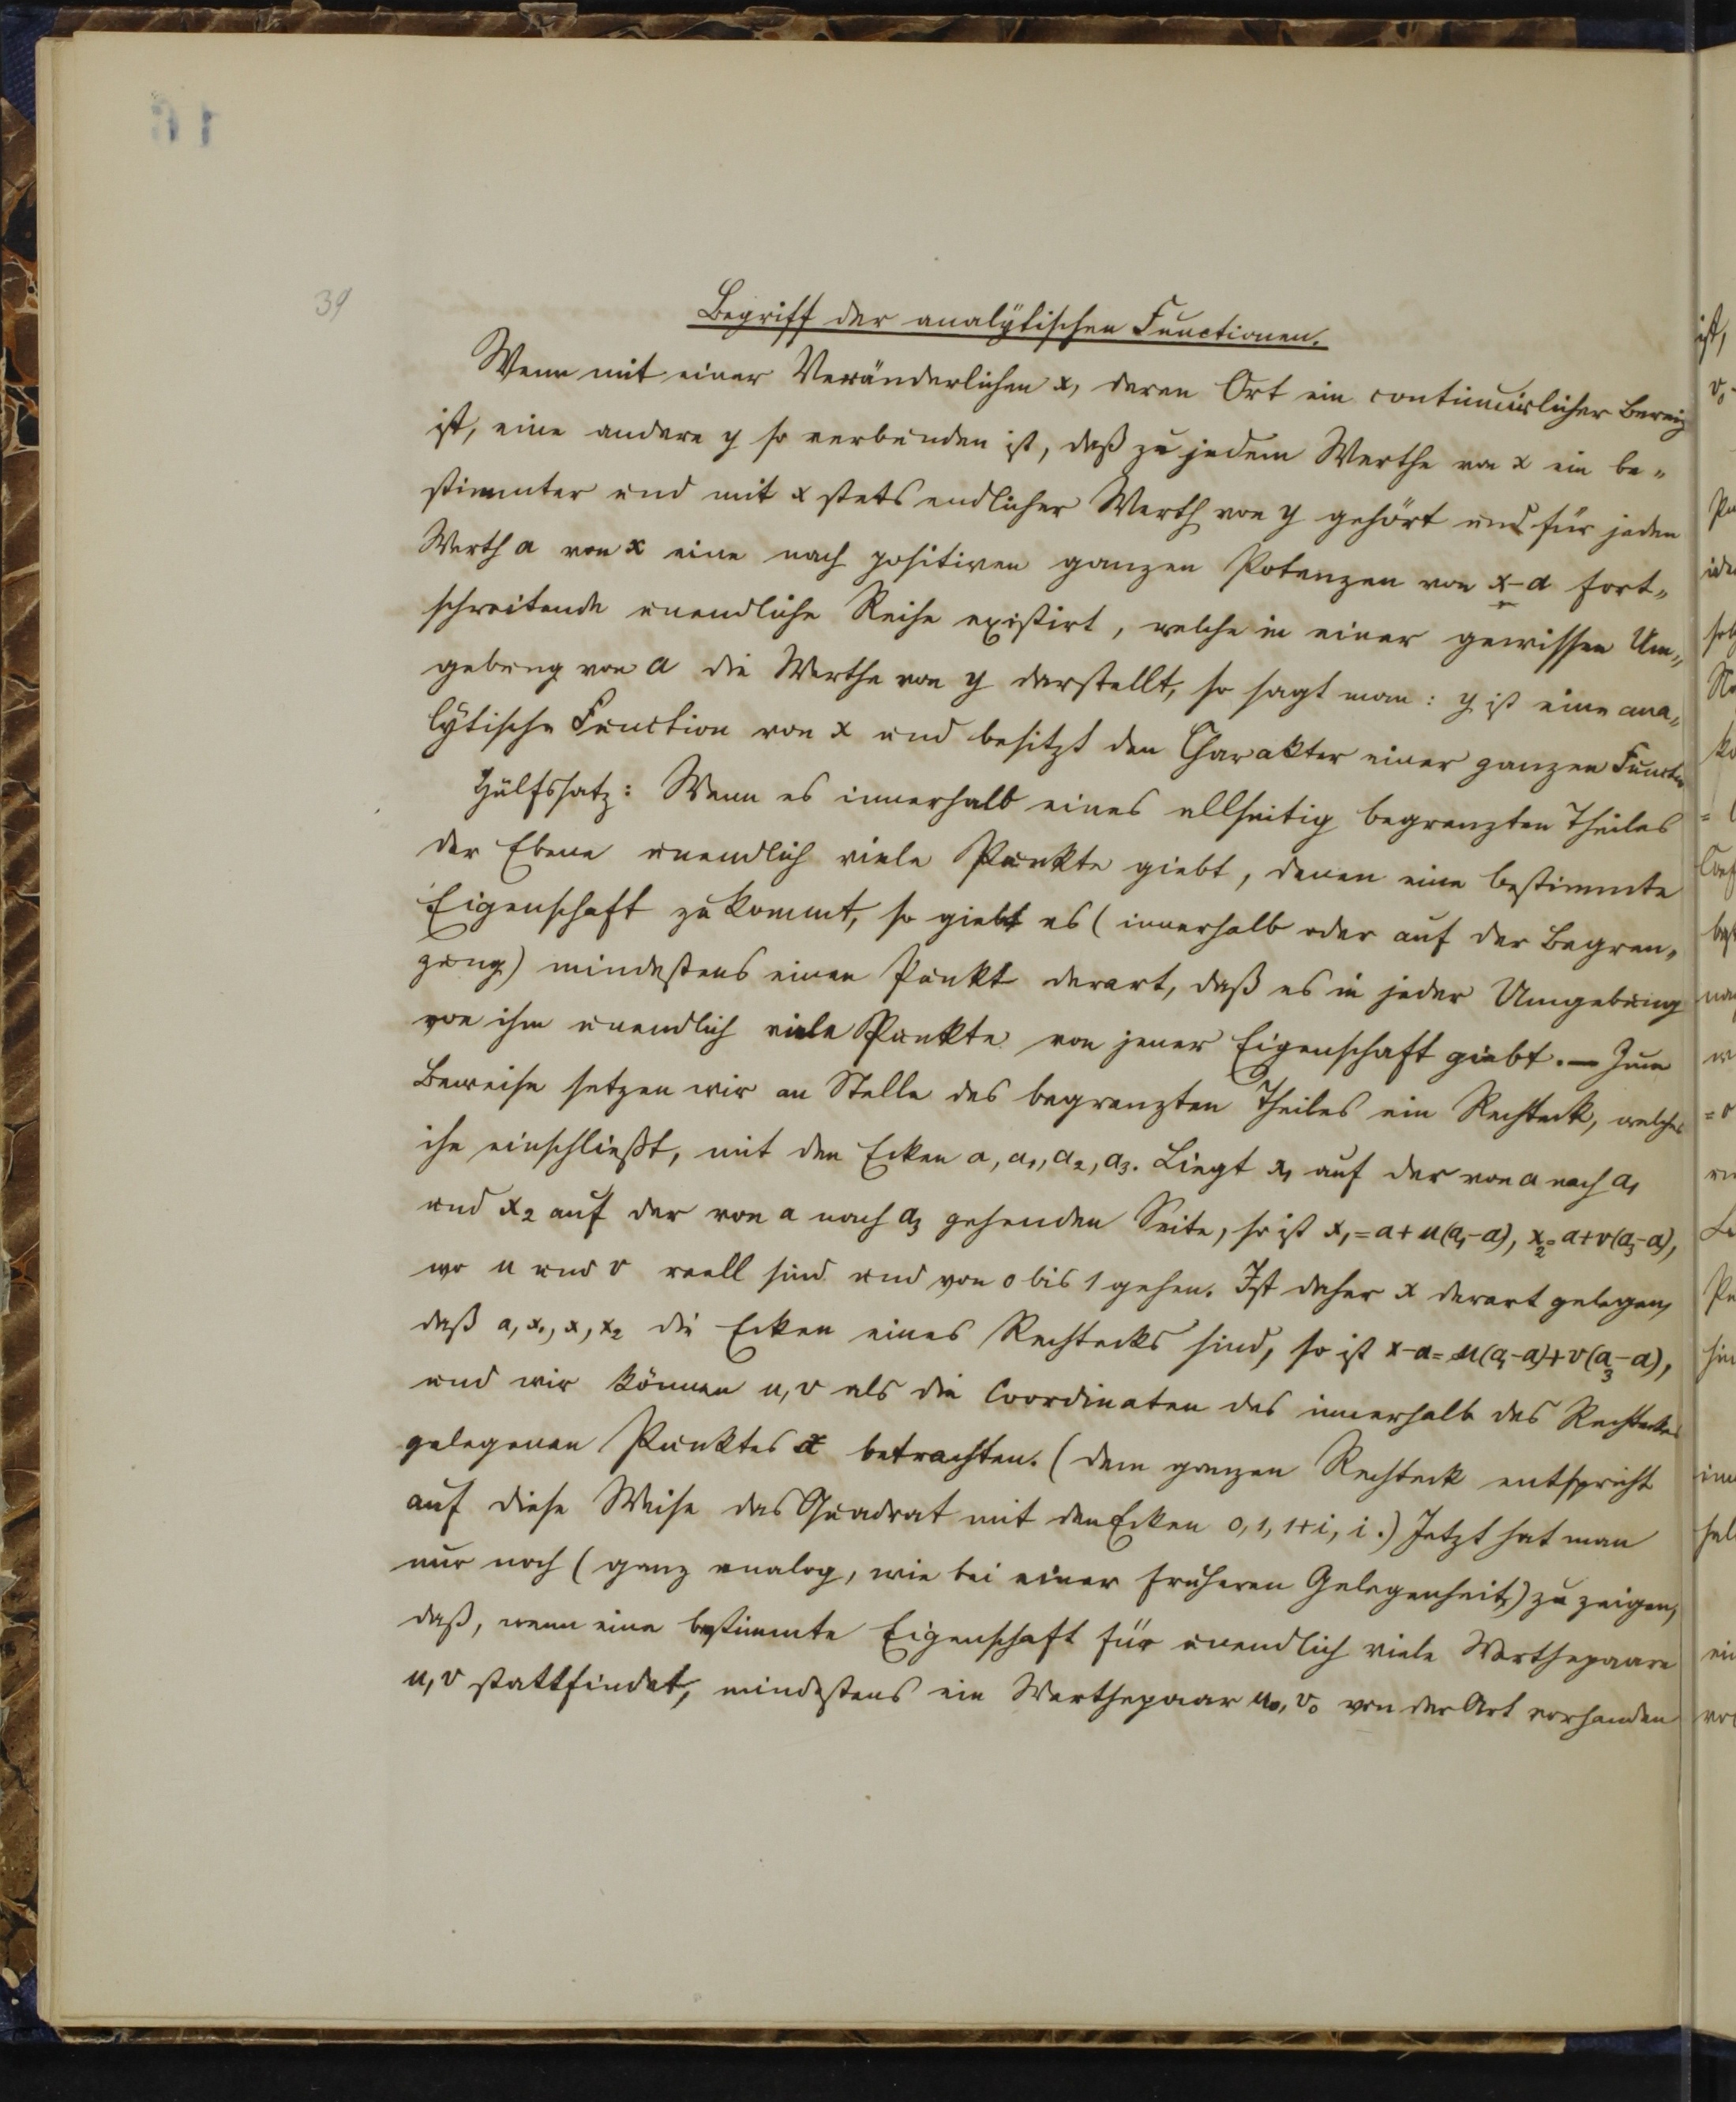 39
Begriff der analytischen Functionen.
Wenn mit einer Veränderlichen x, deren Ort ein continuirlicher Bereich
ist, eine andere y so verbunden ist, daß zu jedem Werthe von x ein be-
stimmter und mit x stets endlicher Werth von y gehört und für jeden
Werth a von x eine nach positiven ganzen Potenzen von x-a fort-
schreitende unendliche Reihe existirt, welche in einer gewissen Um-
gebung von a die Werthe von y darstellt, so sagt man: y ist eine ana-
lytische Function von x und besitzt den Charakter einer ganzen Function
Hülfssatz: Wenn es innerhalb eines allseitig begrenzten Theiles
der Ebene unendlich viele Punkte giebt, denen eine bestimmte
Eigenschaft zukommt, so giebt es (innerhalb oder auf der Begren-
zung) mindestens einen Punkt derart, daß es in jeder Umgebung
von ihm unendlich viele Punkte von jener Eigenschaft giebt. — Zum
Beweise setzen wir an Stelle des begrenzten Theiles ein Rechteck, welches
ihn einschließt, mit den Ecken a, a₁, a₂, a₃. Liegt x₁ auf der von a nach a₁
und x₂ auf der von a nach a₃ gehenden Seite, so ist x₁=a+u(a₁-a), x₂=a+v(a₃-a),
wo u und v reell sind und von 0 bis 1 gehen. Ist daher x derart gelegen,
daß a, x₁, x, x₂ die Ecken eines Rechtecks sind, so ist x-a=u(a₁-a)+v(a₃-a),
und wir können u, v als die Coordinaten des innerhalb des Rechteckes
gelegenen Punktes x betrachten. (Dem ganzen Rechteck entspricht
auf diese Weise das Quadrat mit den Ecken 0, 1, 1+i, i.) Jetzt hat man
nur noch (ganz analog, wie bei einer früheren Gelegenheit) zu zeigen,
daß, wenn eine bestimmte Eigenschaft für unendlich viele Werthepaare
u, v stattfindet, mindestens ein Werthepaar u₀, v₀ von der Art vorhanden